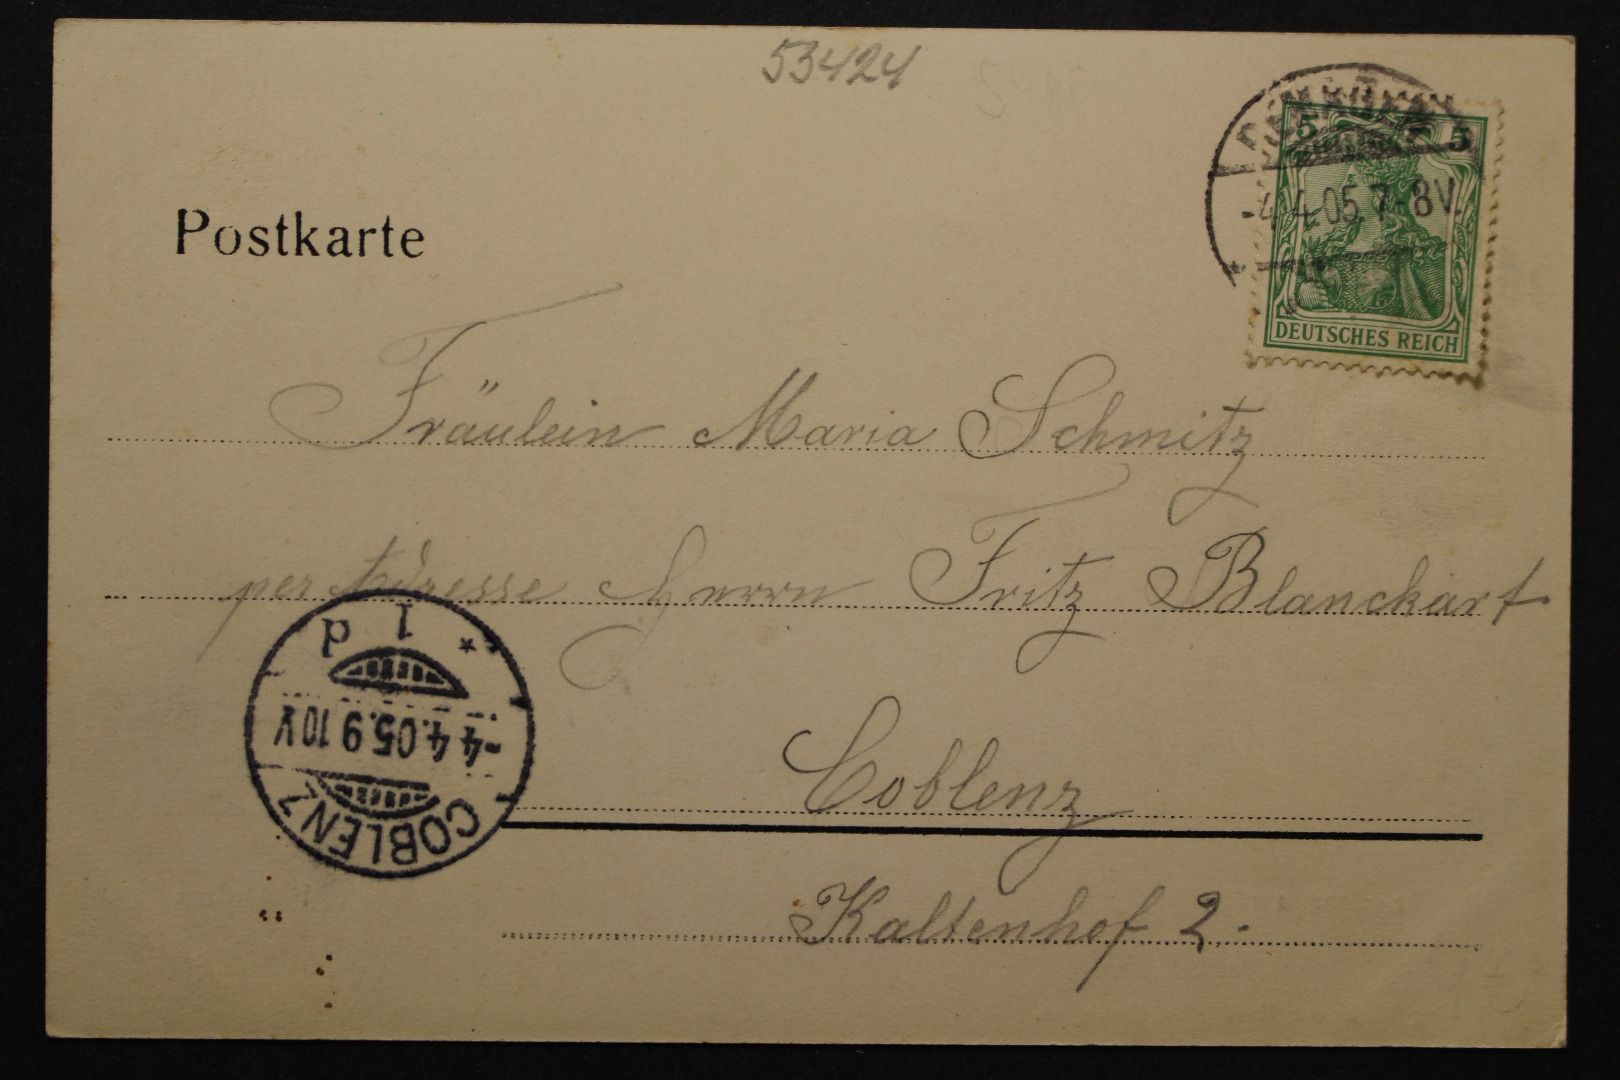 53424
5 5
-4.4.05.7-8V.
DEUTSCHES REICH
Postkarte
Fräulein Maria Schmitz
per Adresse Herrn Fritz Blanckart
Coblenz
Kaltenhof 2.
COBLENZ
-4.4.05.9 10V
* 1 d